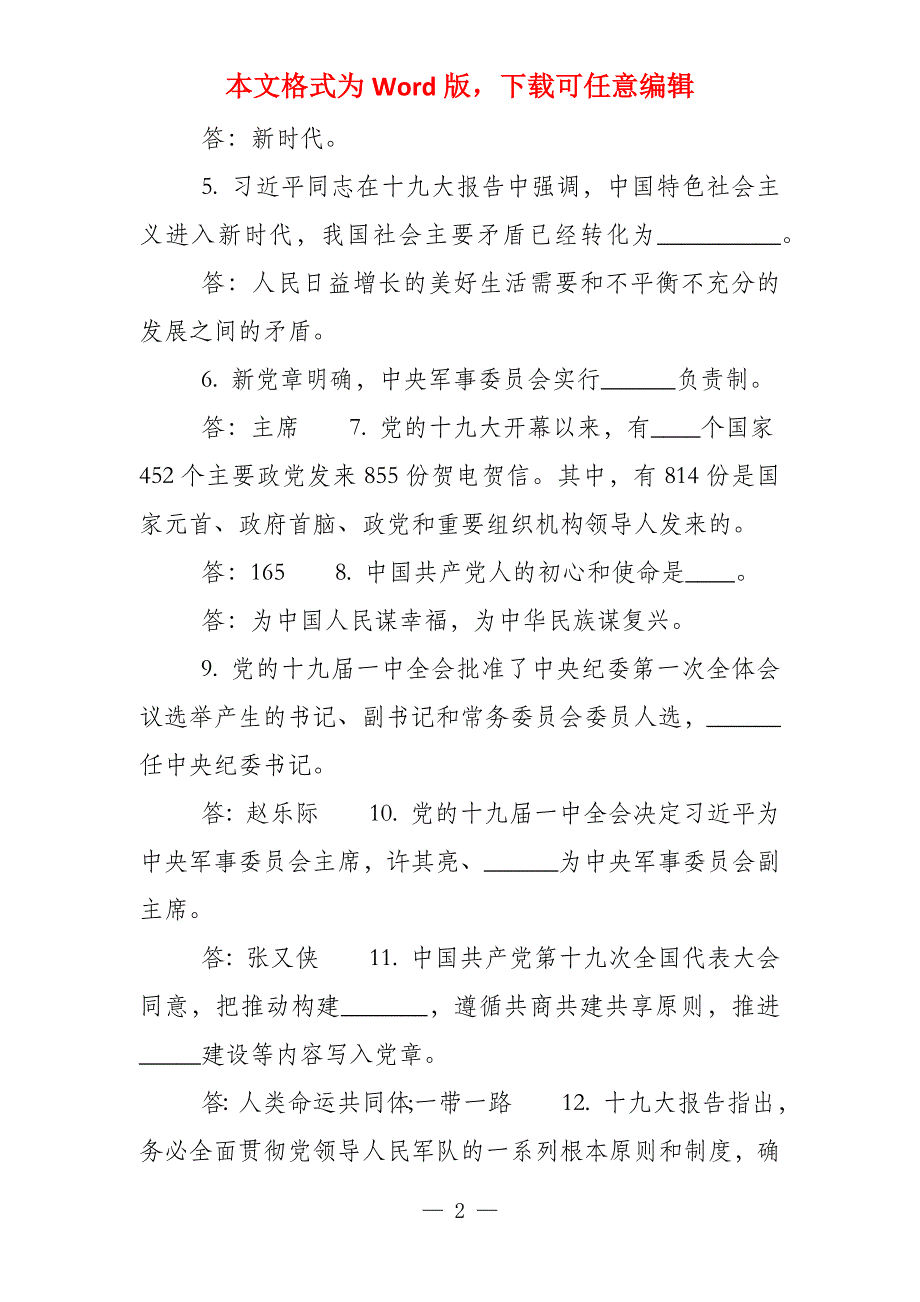 本文格式为 Word 版，下载可任意编辑
答：新时代。
5. 习近平同志在十九大报告中强调，中国特色社会主
义进入新时代，我国社会主要矛盾已经转化为__________。
答：人民日益增长的美好生活需要和不平衡不充分的
发展之间的矛盾。
6. 新党章明确，中央军事委员会实行______负责制。
答：主席 7. 党的十九大开幕以来，有____个国家
452 个主要政党发来 855 份贺电贺信。其中，有 814 份是国
家元首、政府首脑、政党和重要组织机构领导人发来的。
答：165 8. 中国共产党人的初心和使命是____。
答：为中国人民谋幸福，为中华民族谋复兴。
9. 党的十九届一中全会批准了中央纪委第一次全体会
议选举产生的书记、副书记和常务委员会委员人选，______
任中央纪委书记。
答: 赵乐际 10. 党的十九届一中全会决定习近平为
中央军事委员会主席，许其亮、______为中央军事委员会副
主席。
答: 张又侠 11. 中国共产党第十九次全国代表大会
同意，把推动构建_______，遵循共商共建共享原则，推进
_____建设等内容写入党章。
答: 人类命运共同体;一带一路 12. 十九大报告指出，
务必全面贯彻党领导人民军队的一系列根本原则和制度，确
— 2 —